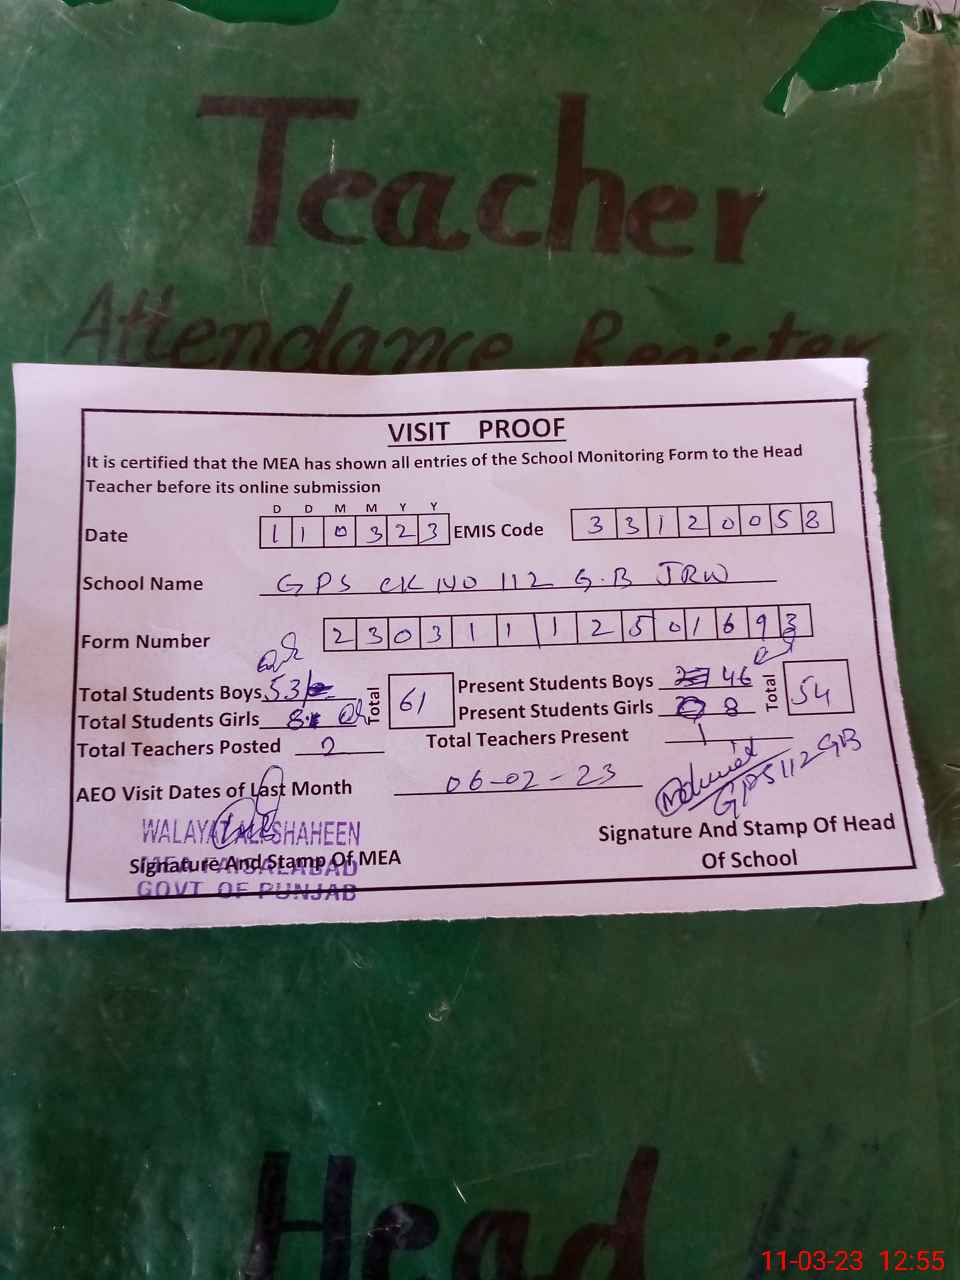 Teacher
Attendance Register
VISIT PROOF
It is certified that the MEA has shown all entries of the School Monitoring Form to the Head
Teacher before its online submission
D D M M Y Y
Date 1 1 0 3 2 3 EMIS Code 3 3 1 2 0 0 5 8
School Name GPS CK NO 112 G.B JRW
Form Number 2 3 0 3 1 1 1 2 5 0 1 6 9 3
Total Students Boys 53 Total 61 Present Students Boys 46 Total 54
Total Students Girls 8 Present Students Girls 8
Total Teachers Posted 2 Total Teachers Present 1
AEO Visit Dates of Last Month 06-02-23
GPS 112 GB
WALAYAT ALI SHAHEEN
Signature And Stamp Of MEA
MEA FAISALABAD
GOVT OF PUNJAB
Signature And Stamp Of Head
Of School
Head
11-03-23 12:55